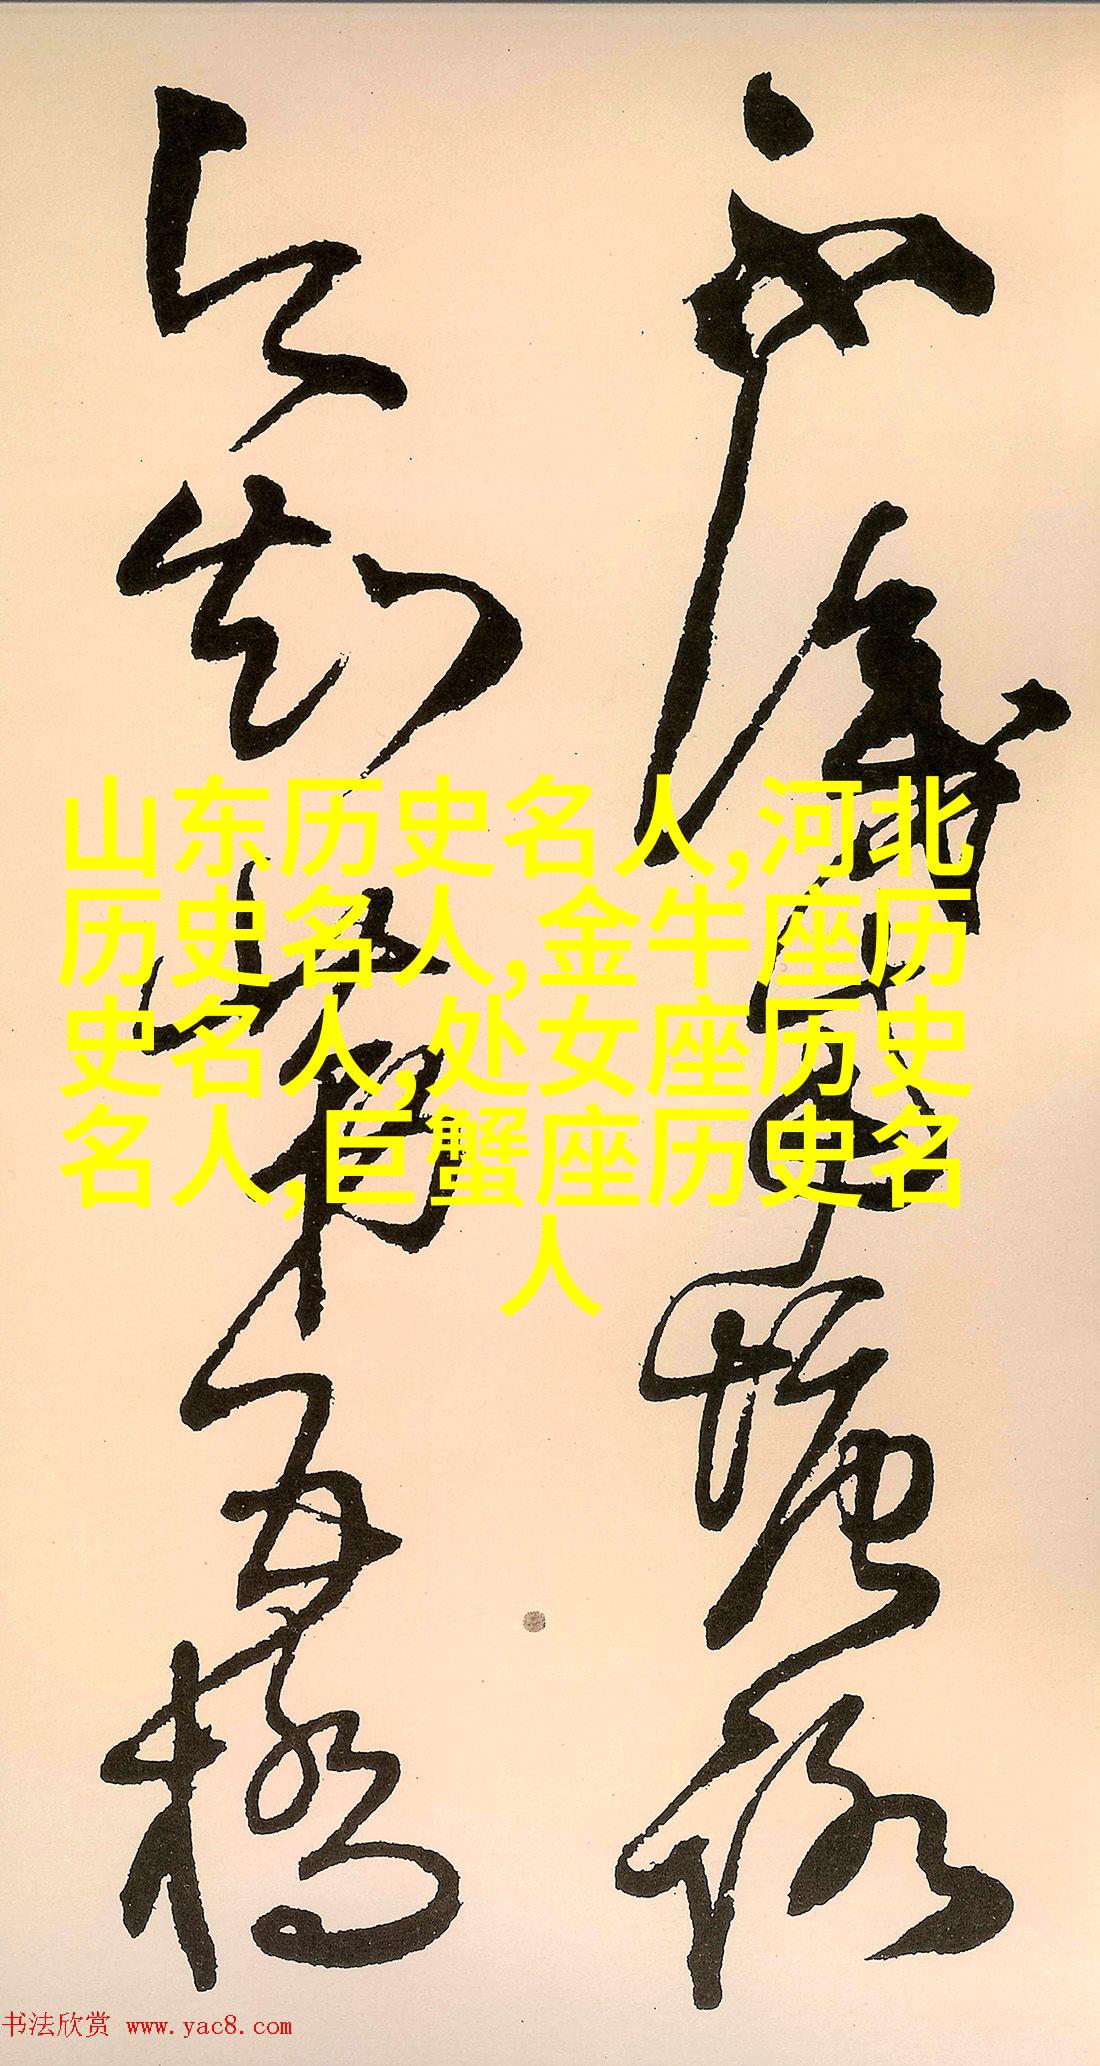 不識南塘路
今知第五橋
山东历史名人,河北
历史名人,金牛座历
史名人,处女座历史
名人,巨蟹座历史名
人
书法欣赏 www.yac8.com